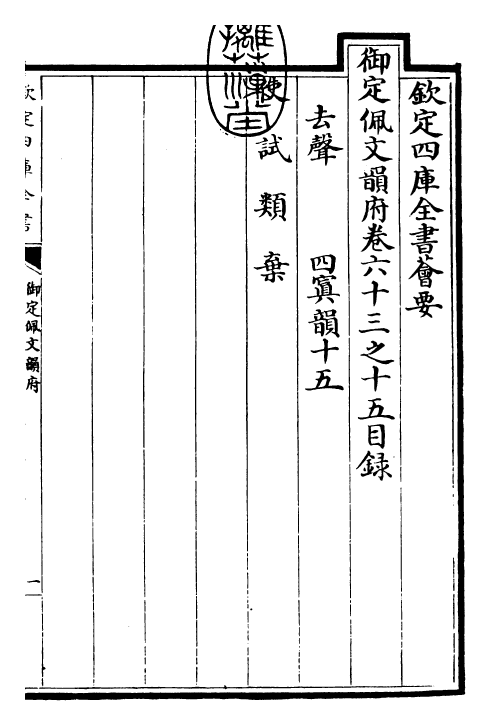 欽定四庫全書薈要
御定佩文韻府卷六十三之十五目録
去聲　四寘韻十五
使　試　類　棄
欽定四庫全書
御定佩文韻府
一